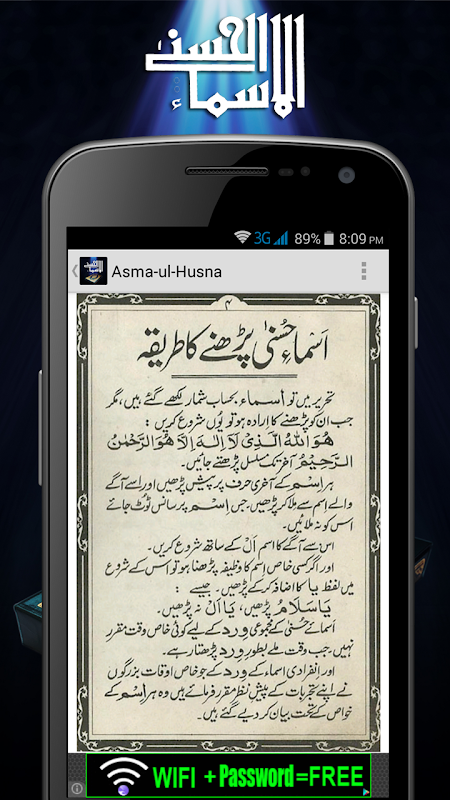 الاسماء الحسنى
3G 89% 8:09 PM
Asma-ul-Husna
۴
اَسْمَاءِ حُسْنٰی پڑھنے کا طریقہ
تحریر میں تو اَسماء بحساب شمار لکھے گئے ہیں، مگر
جب ان کو پڑھنے کا اِرادہ ہو تو یُوں شروع کریں:
هُوَاللّٰهُ الَّذِیْ لَا اِلٰهَ اِلَّا هُوَ الرَّحْمٰنُ
الرَّحِیْمُ آخر تک مسلسل پڑھتے جائیں۔
ہر اِسْم کے آخری حرف پر پیش پڑھیں اور اسے آگے
والے اسم سے ملا کر پڑھیں، جس اِسْم پر سانس ٹوٹ جائے
اس کو نہ ملائیں۔
اس سے آگے کا اسم اَلْ کے ساتھ شروع کریں۔
اور اگر کسی خاص اِسم کا وظیفہ پڑھنا ہو تو اس کے شروع
میں لفظ یَا کا اضافہ کر کے پڑھیں۔ جیسے:
یَاسَلَامُ پڑھیں، یَا اَلْ نہ پڑھیں۔
اسمائے حُسنٰی کے مجموعی وِرد کے لیے کوئی خاص وقت مقرر
نہیں، جب وقت ملے بطورِ وِرد پڑھتا رہے۔
اور اِنفرادی اسماء کے وِرد کے جو خاص اوقات بزرگوں
نے اپنے تجربات کے پیشِ نظر مقرر فرمائے ہیں وہ ہر اِسْم کے
خواص کے تحت بیان کر دیے گئے ہیں۔
WIFI + Password = FREE